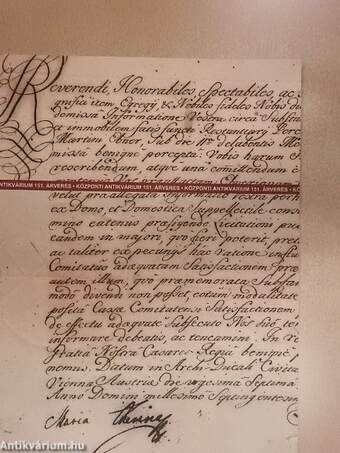 Reverendi, Honorabiles, Spectabiles, ac
gnifici item Egregij, & Nobiles fideles Nobis di
domissa Informatione Vestra circa Substan
et immobilem
Martini Sub die
missa benigne percepta: Vobis harum
rescribendum, atque una comittendum e
ANTIKVÁRIUM 151. ÁRVERÉS • KÖZPONTI ANTIKVÁRIUM 151. ÁRVERÉS • KÖZPONTI ANTIKVÁRIUM 151. ÁRVERÉS • KÖ
velut praeallegata Informatio vestra
ex Domo, et Domestica Suppellectile
mino eatenus praefigendo licitationi
eandem in majori, quo fieri poterit, pretio
ac taliter ex pecunijs hac ratione influ
Comitatûs adaequatam Satisfactionem prae
autem illum, quo praememorata Substan
modô divendi non posset, cotum modalitate
posita Cassae Comitatensis Satisfactionem
de effectu adaequate Subsecuto Nos hic
informare debeatis, ac teneamini. In
Gratiâ Nostrâ Caesareo-Regia benigne
nemus. Datum in Archi-Ducali Civita
Vienna Austriae die vigesima Septima
Anno Domini millesimo Septingentesim
Maria Theresia
Antikvárium.hu
Antikvárium.hu